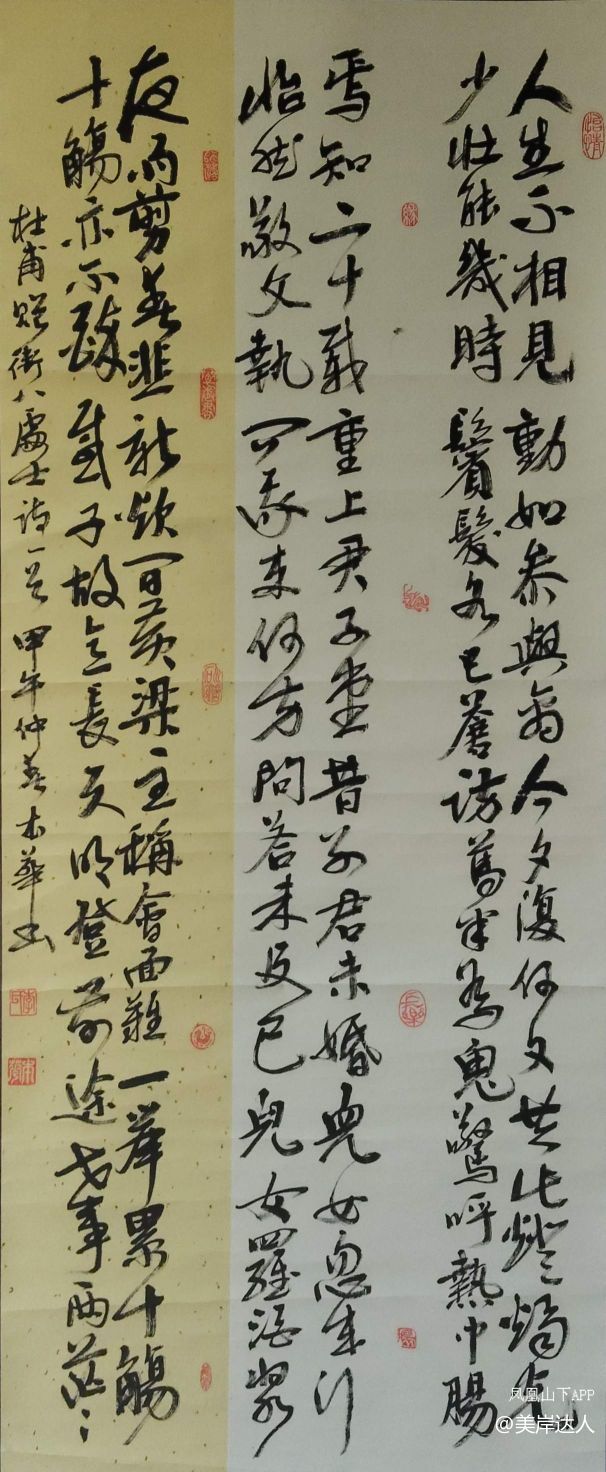 人生不相見動如參與商今夕復何夕共此燈燭光
少壯能幾時鬢髮各已蒼訪舊半為鬼驚呼熱中腸
焉知二十載重上君子堂昔別君未婚兒女忽成行
怡然敬父執問我來何方問答未及已兒女羅酒漿
夜雨剪春韭新炊間黃梁主稱會面難一舉累十觴
十觴亦不醉感子故意長天明登前途世事兩茫〻
杜甫贈衛八處士詩一首 甲午仲春木華書
怡情
凤凰山下APP
@美岸达人